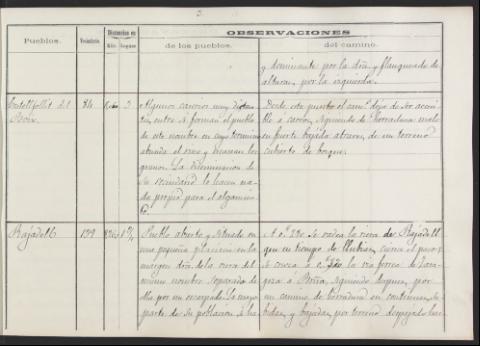 3.
OBSERVACIONES
Pueblos.
Vecindario
Distancias en
Kils. leguas
de los pueblos.
del camino.
y dominante por la dra. y flanqueado de
alturas por la izquierda.
Castellfollit del
Boix.
84
3
Algunos caserios muy distan-
tes entre si forman el pueblo
de este nombre en cuyo termino
abunda el vino y escasean los
granos. La diseminacion de
su vecindario lo hacen na-
da propio para el alojamien-
to.
Desde este puesto el camo. deja de ser accesi-
ble a carros, siguiendo de herradura malo
en fuerte bajada atraves de un terreno
cubierto de bosque.
Rajadell
139
Pueblo abierto y situado en
una pequeña planicie en la
margen dra. de la riera del
mismo nombre separado de
ella por un escarpado. La mayor
parte de su poblacion se ha-
se vadea la riera de Rajadell
que en tiempo de lluvias,
se cruza a la via ferrea de Zara-
goza a siguiendo despues por
un camino de herradura en continuas su-
bidas y bajadas por terreno despejado has-